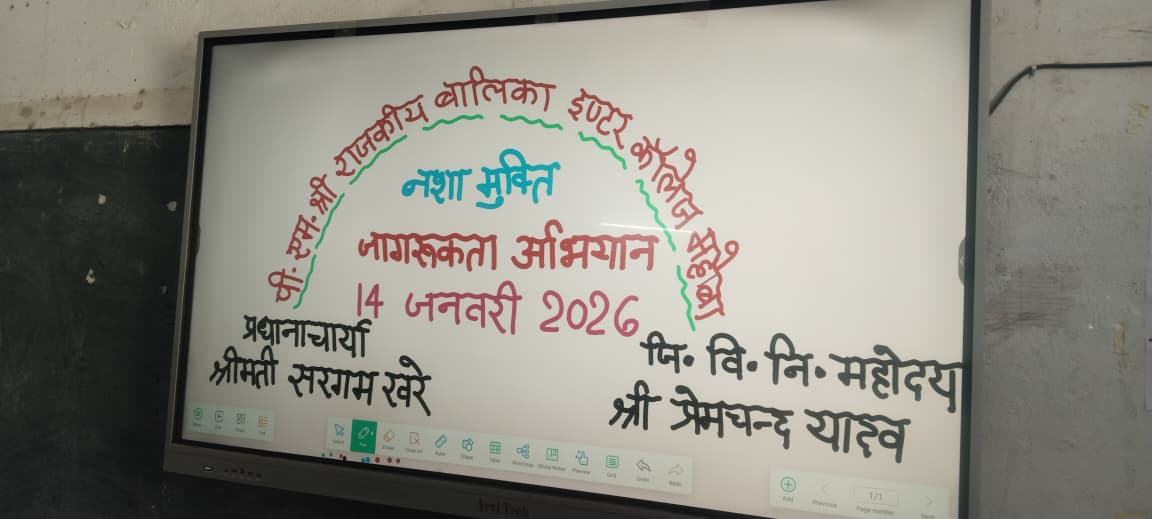 पी. एम. श्री राजकीय बालिका इण्टर कॉलेज
नशा मुक्ति
जागरूकता अभियान
14 जनवरी 2026
प्रधानाचार्या
श्रीमती सरगम खरे
जि. वि. नि. महोदय
श्री प्रेमचन्द यादव
Select
Ruler
Shape
Table
Mind map
Sticky Notes
Preview
Grid
Undo
Redo
Add
Previous
1/1
Page number
Next
Arti Tech